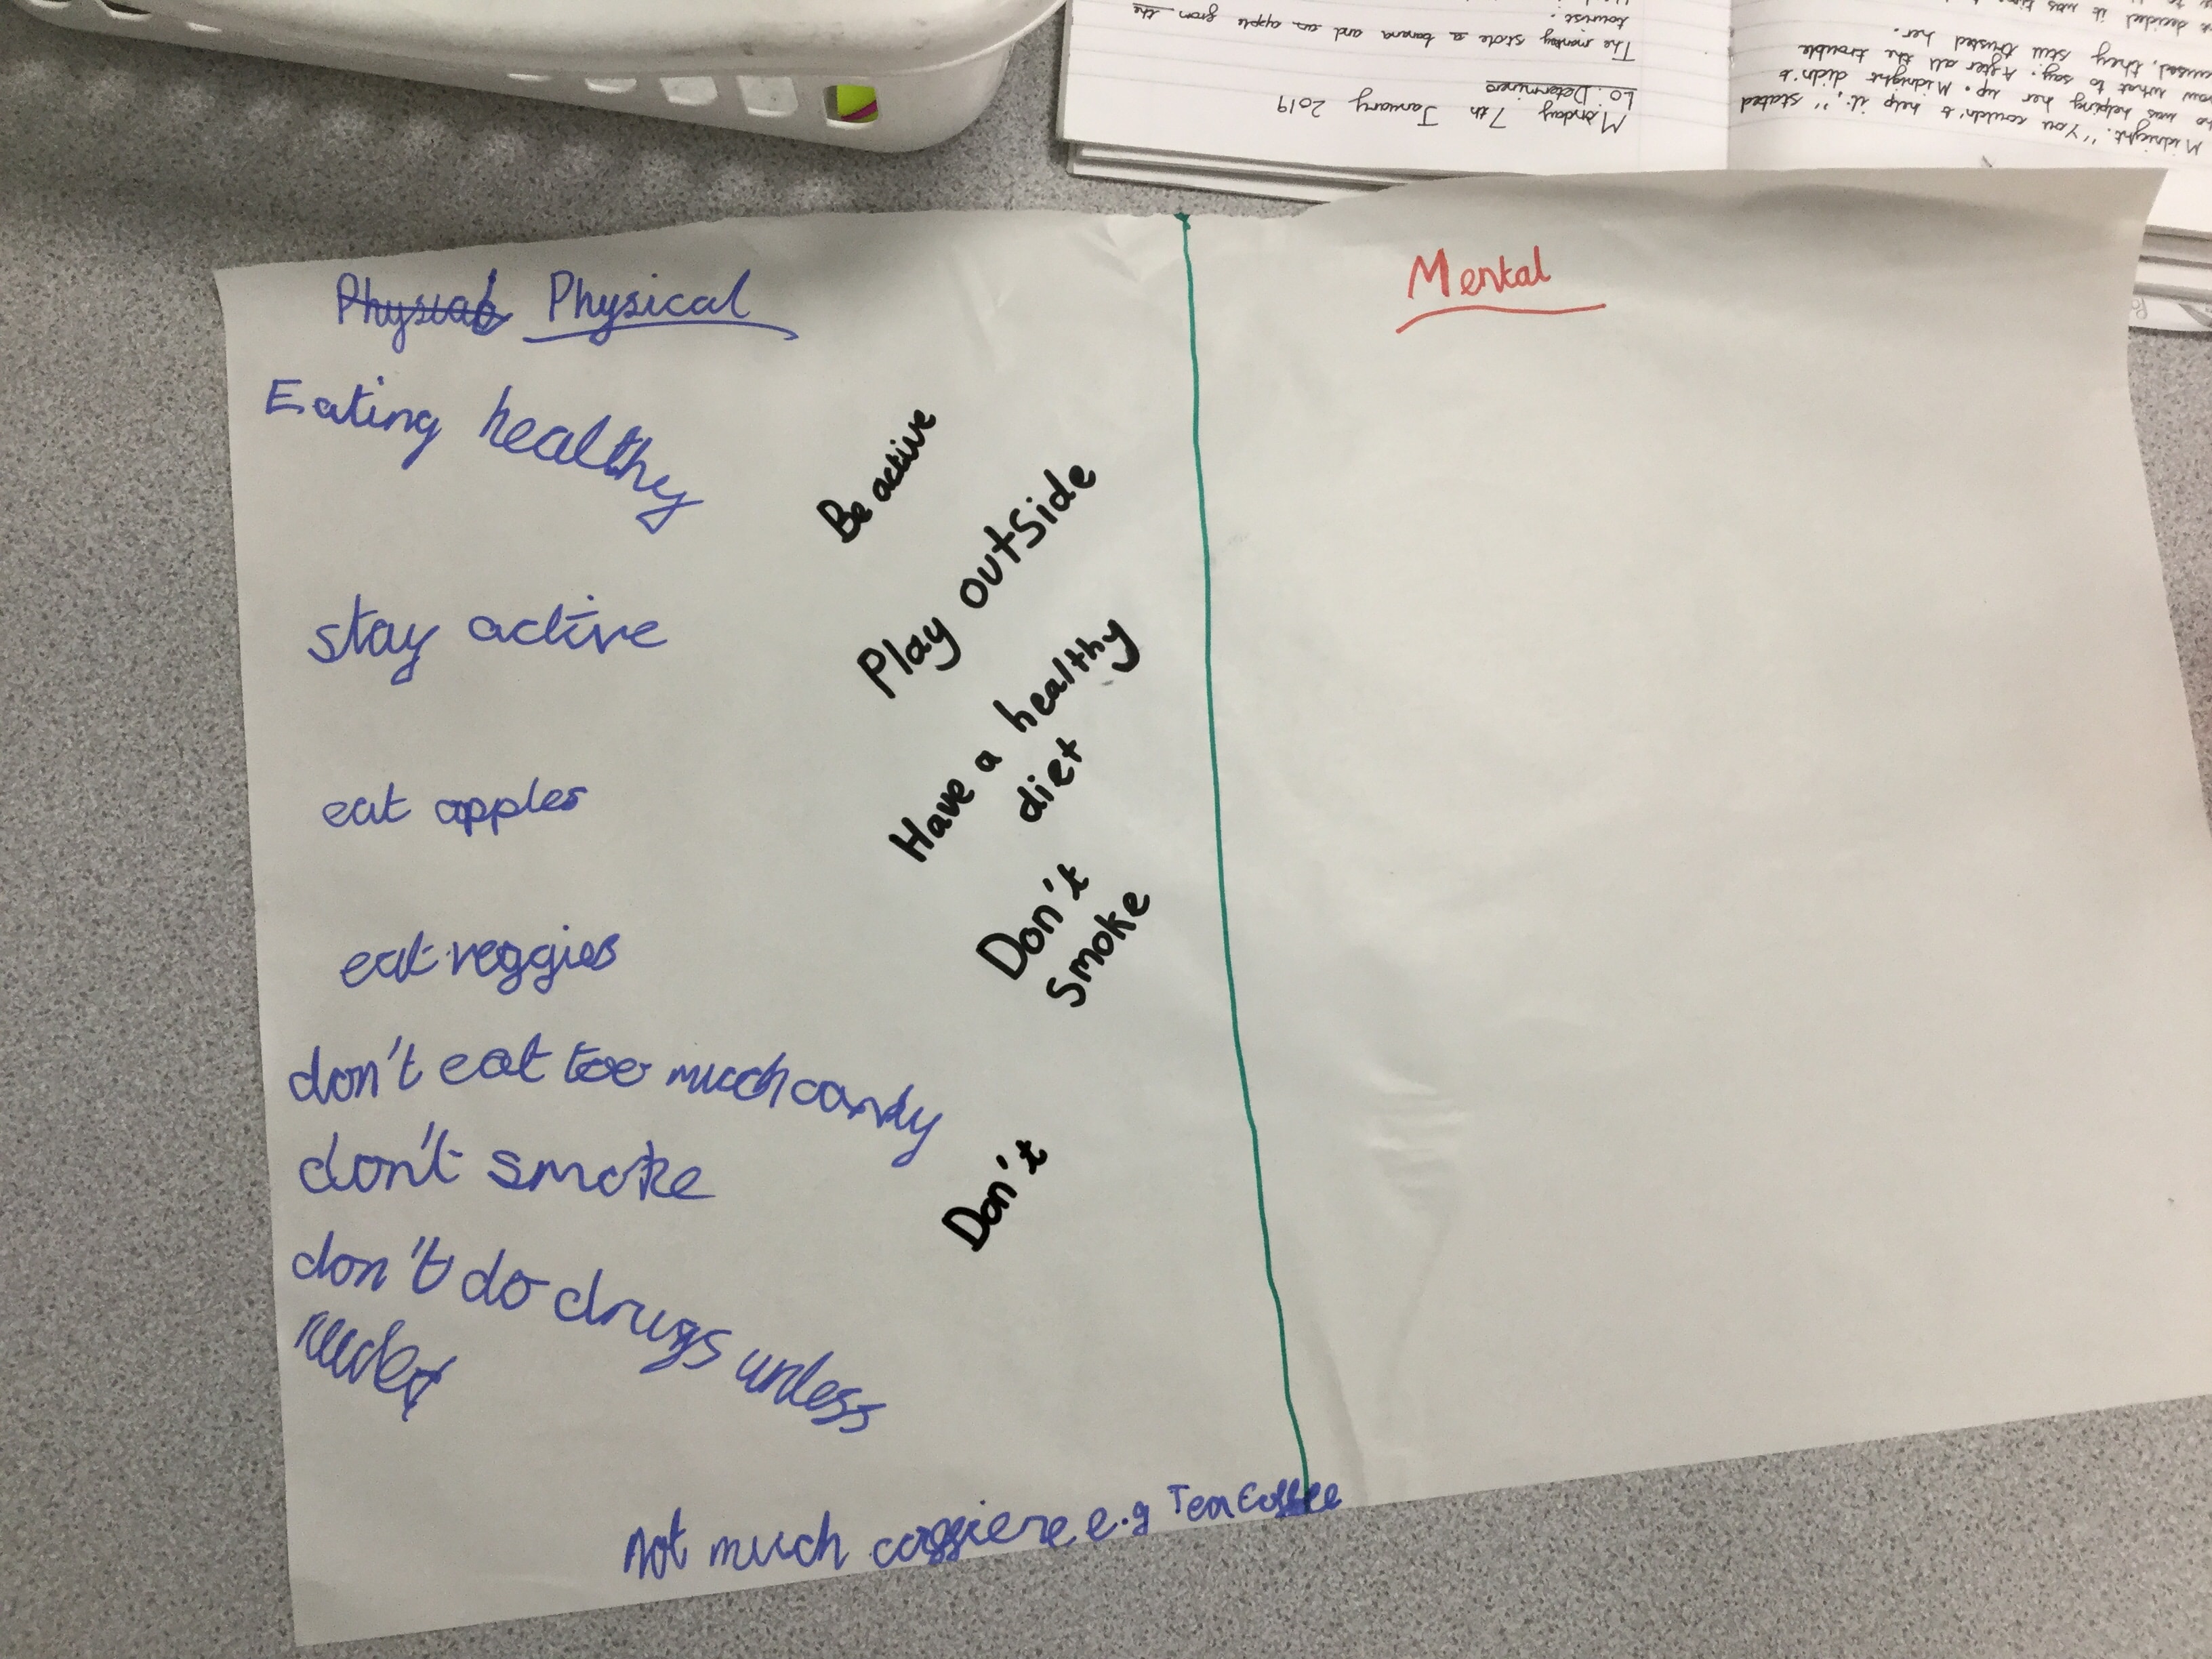 Physical Physical
Eating healthy
stay active
eat apples
eat veggies
don't eat too much candy
don't smoke
don't do drugs unless
needed
not much caffiene e.g Tea Coffee
Be active
Play outside
Have a healthy
diet
Don't
smoke
Don't
Mental
Monday 7th January 2019
LO: Determiners
The monkey stole a banana and an apple from the
tourist.
Midnight. "You couldn't help it," stated
was helping her up. Midnight didn't
what to say. After all the trouble
caused, they still trusted her.
decided it was time